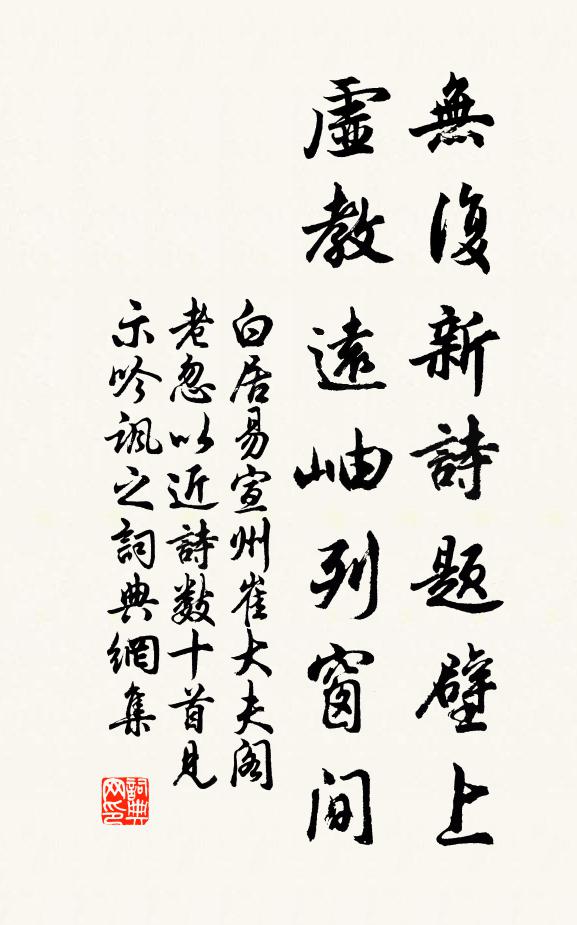 無復新詩題壁上
虛教遠岫列窗間
白居易宣州崔大夫閣
老忽以近詩数十首見
示吟諷之詞典網集
詞典
网印